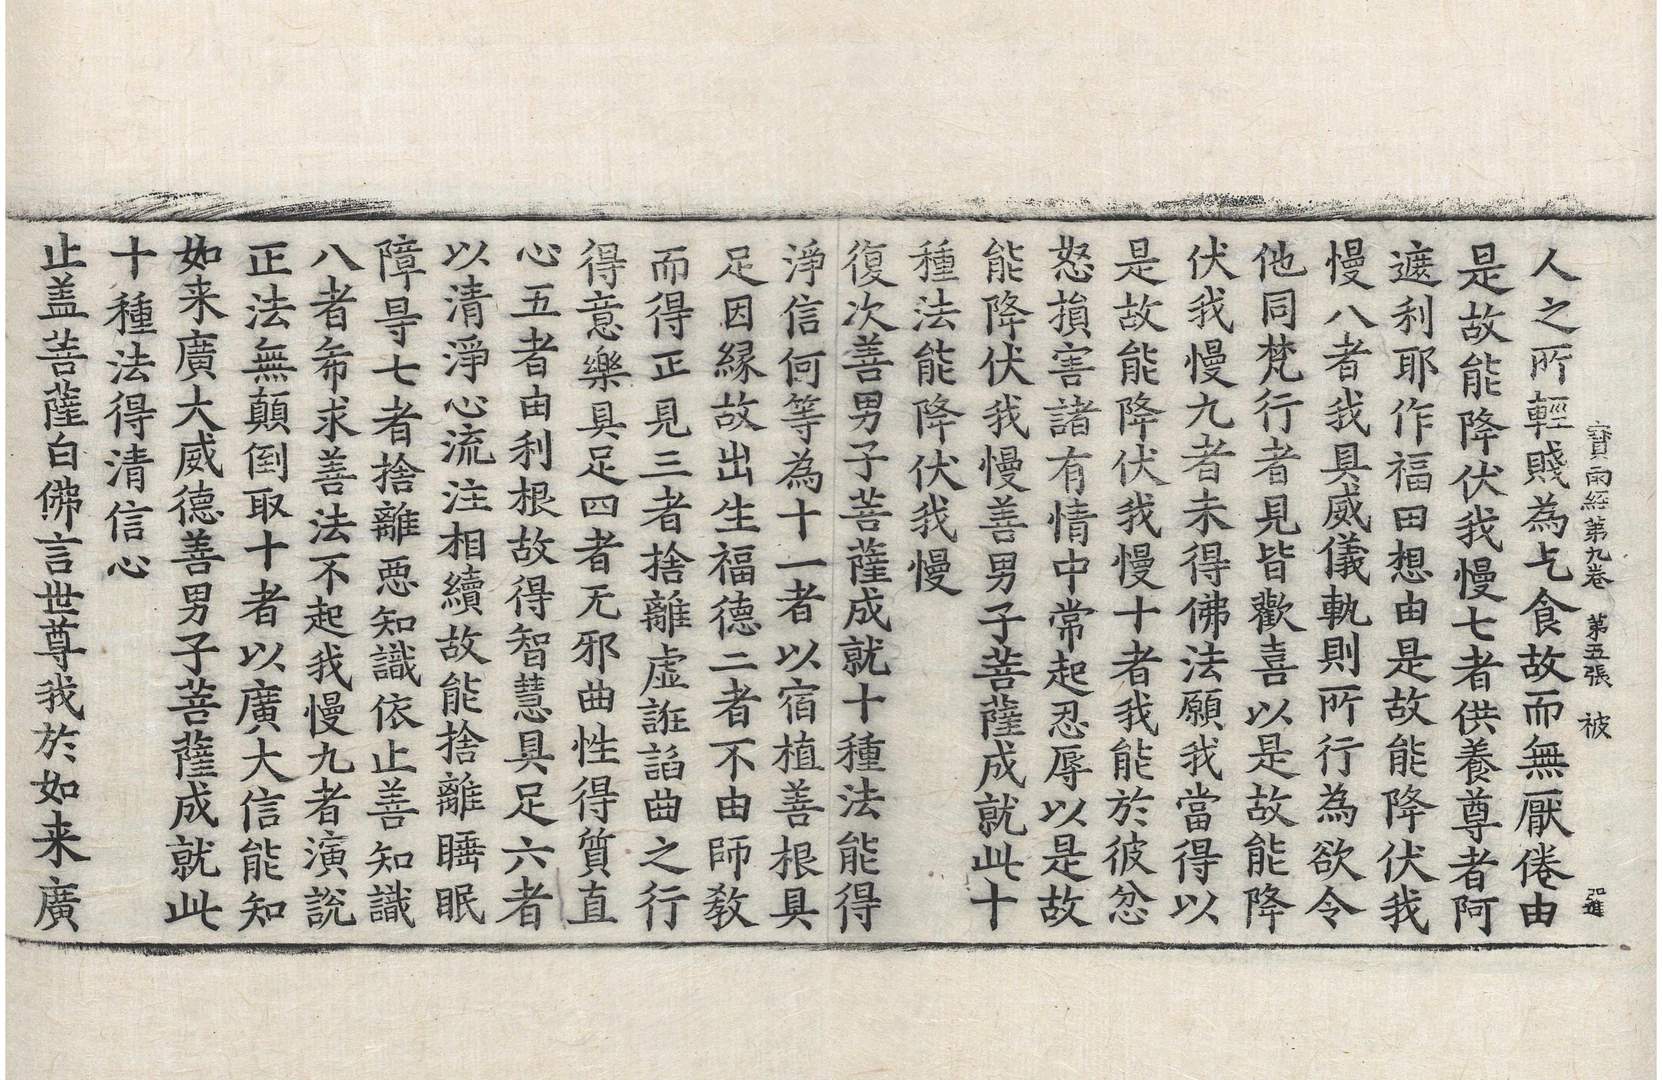 寶雨經第九卷 第五張 被
人之所輕賤為乞食故而無厭倦由
是故能降伏我慢七者供養尊者阿
遮利耶作福田想由是故能降伏我
慢八者我具威儀軌則所行為欲令
他同梵行者見皆歡喜以是故能降
伏我慢九者未得佛法願我當得以
是故能降伏我慢十者我能於彼忿
怒損害諸有情中常起忍辱以是故
能降伏我慢善男子菩薩成就此十
種法能降伏我慢
復次善男子菩薩成就十種法能得
淨信何等為十一者以宿植善根具
足因緣故出生福德二者不由師教
而得正見三者捨離虛誑諂曲之行
得意樂具足四者无邪曲性得質直
心五者由利根故得智慧具足六者
以清淨心流注相續故能捨離睡眠
障㝵七者捨離惡知識依止善知識
八者希求善法不起我慢九者演說
正法無顛倒取十者以廣大信能知
如来廣大威德善男子菩薩成就此
十種法得清信心
止盖菩薩白佛言世尊我於如来廣